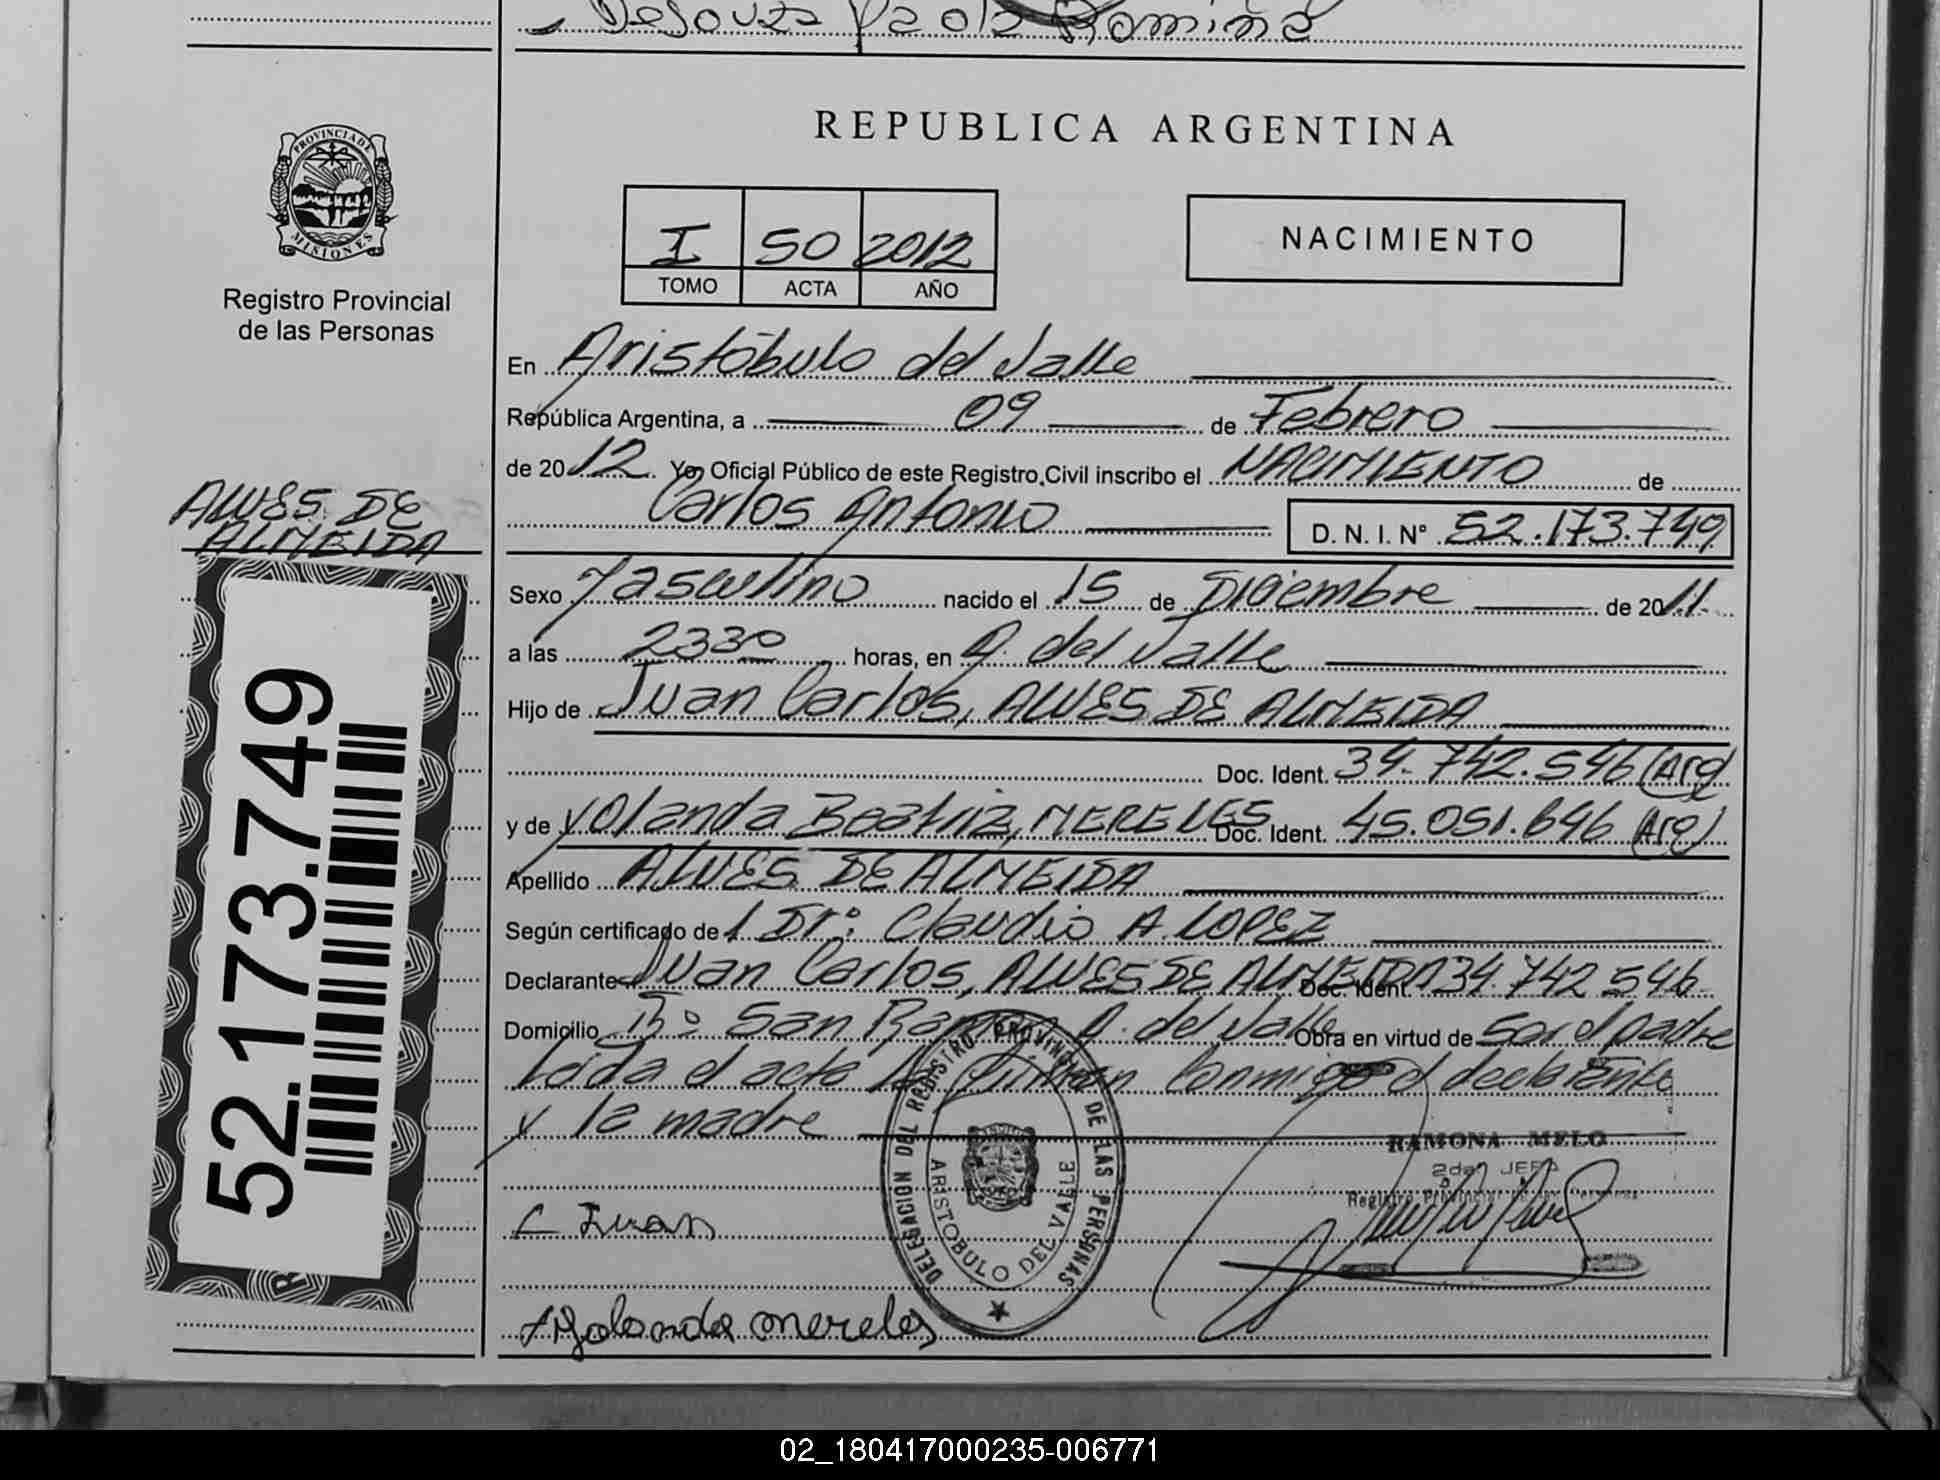 Desouza Paola Romina
PROVINCIA DE
MISIONES
Registro Provincial
de las Personas
REPUBLICA ARGENTINA
I 50 2012
TOMO ACTA AÑO
NACIMIENTO
En Aristóbulo del Valle
República Argentina, a 09 de Febrero
de 2012. Yo, Oficial Público de este Registro Civil inscribo el NACIMIENTO de
Carlos Antonio D. N. I. N° 52.173.749
ALVES DE
ALMEIDA
Sexo Masculino nacido el 15 de Diciembre de 2011
a las 2330 horas, en A. del Valle
Hijo de Juan Carlos, ALVES DE ALMEIDA
Doc. Ident. 34.742.546 (Arg)
y de Yolanda Beatriz, MERELES Doc. Ident. 45.051.646 (Arg)
Apellido ALVES DE ALMEIDA
Según certificado del Dr: Claudio A LOPEZ
Declarante Juan Carlos, ALVES DE ALMEIDA Doc. Ident. 34.742 546
Domicilio B° San Ramón A. del Valle Obra en virtud de Ser el padre
Leída el acta la firman conmigo el declarante
y la madre
52.173.749
DELEGACION DEL REGISTRO PROVINCIAL DE LAS PERSONAS
ARISTOBULO DEL VALLE
RAMONA MELO
2da. JEFA
Registro Provincial de las Personas
Juan
Yolanda mereles
02_180417000235-006771